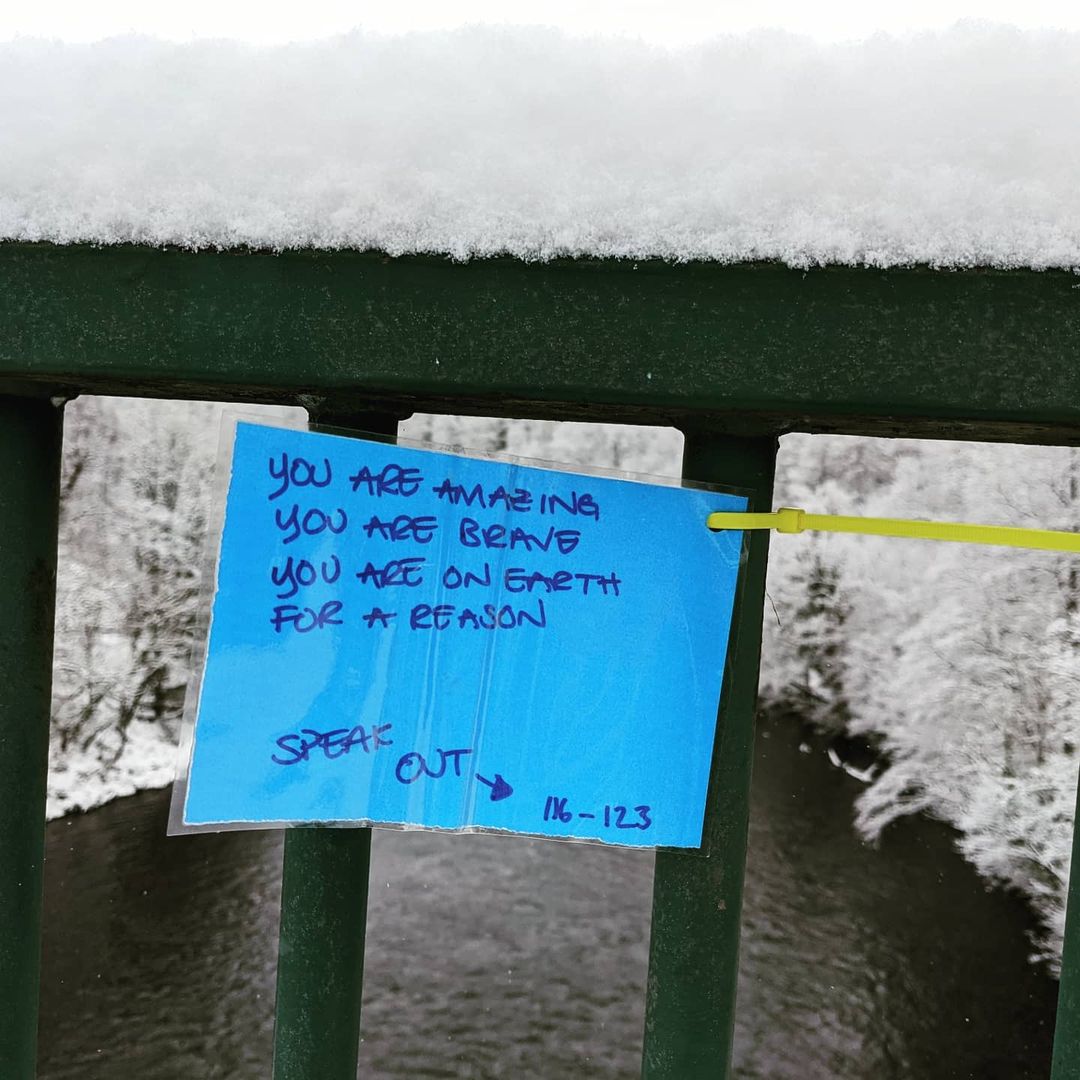 YOU ARE AMAZING
YOU ARE BRAVE
YOU ARE ON EARTH
FOR A REASON
SPEAK
OUT
116-123